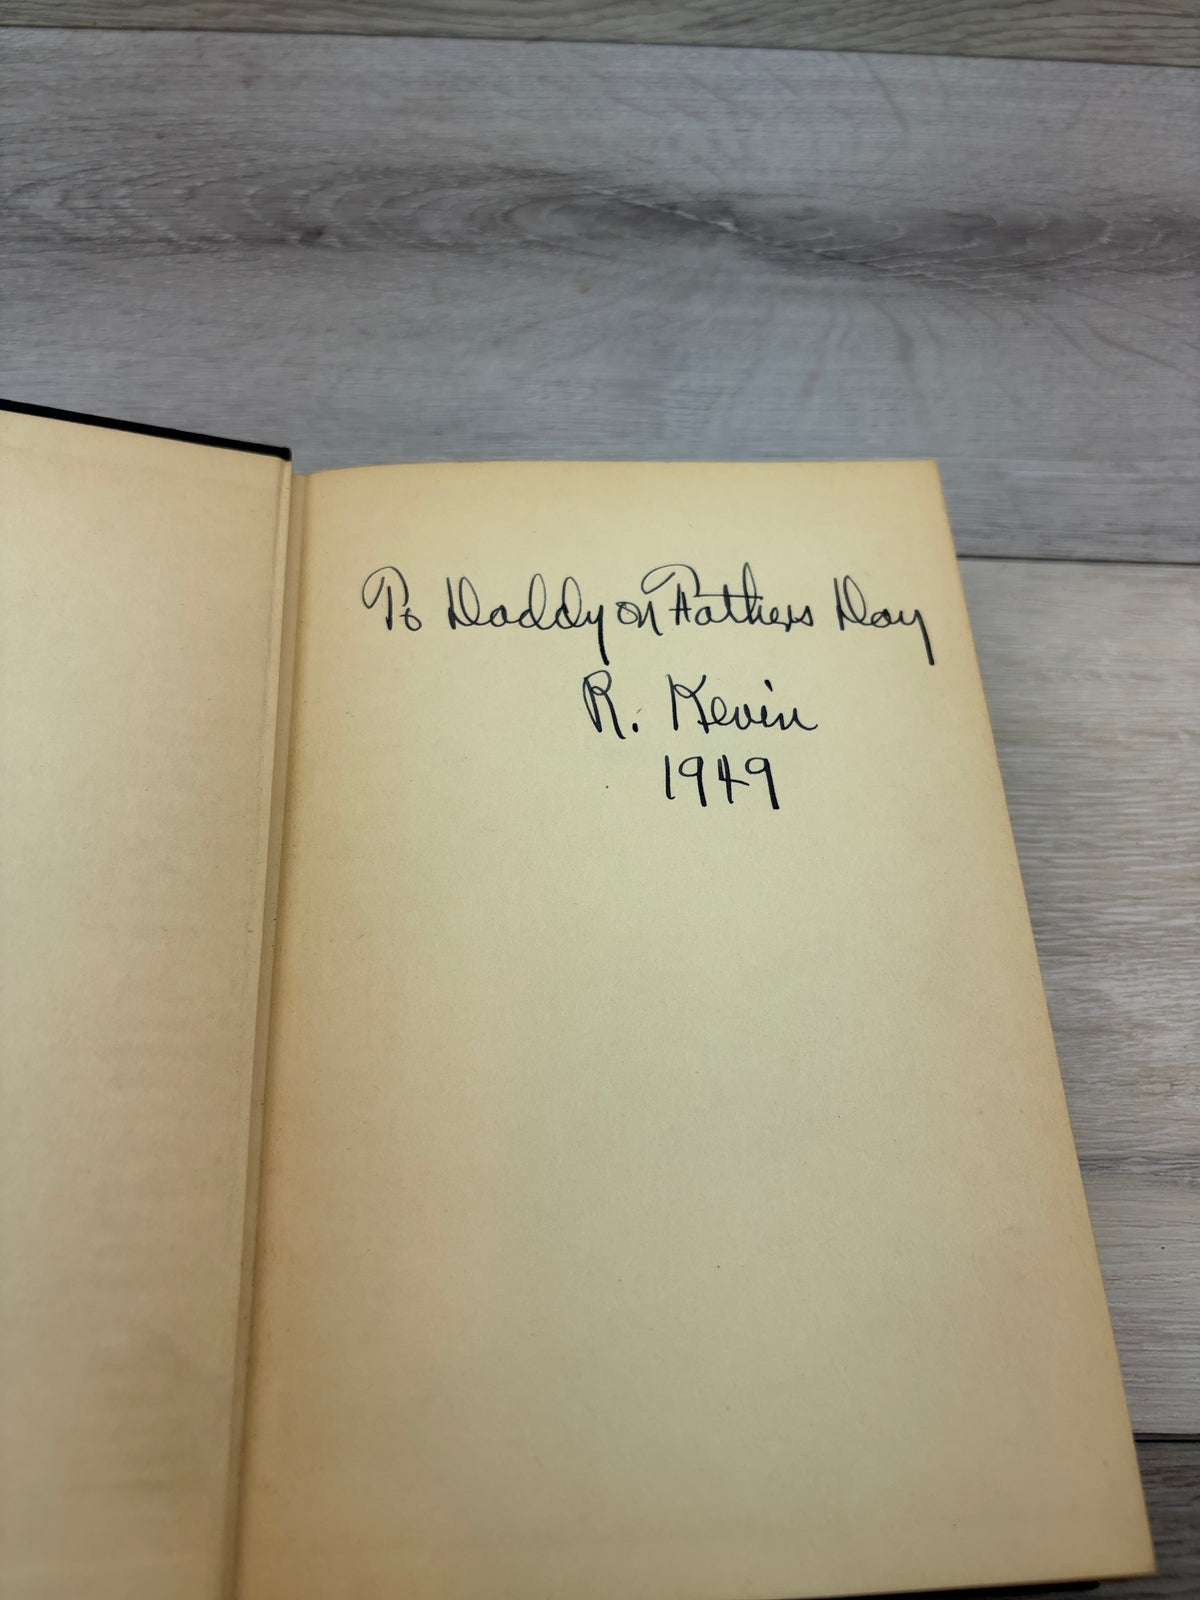 To Daddy on Fathers Day
R. Kevin
1949